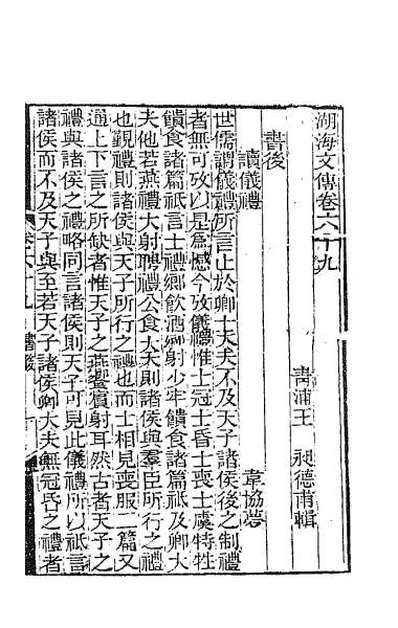 湖海文傳卷六十九
青浦王　昶德甫輯
書後
讀儀禮　韋協夢
世儒謂儀禮所言止於卿大夫不及天子諸侯後之制禮
者無可攷以是爲憾今攷儀禮惟士冠士昏士喪士虞特牲
饋食諸篇祇言士禮鄉飲酒鄉射少牢饋食諸篇祇及卿大
夫他若燕禮大射聘禮公食大夫則諸侯與羣臣所行之禮
也覲禮則諸侯與天子所行之禮也而士相見喪服二篇又
通上下言之所缺者惟天子之燕饗賓射耳然古者天子之
禮與諸侯之禮略同言諸侯則天子可見此儀禮所以祇言
諸侯而不及天子與至若天子諸侯卿大夫無冠昏之禮者
卷六十九　書後